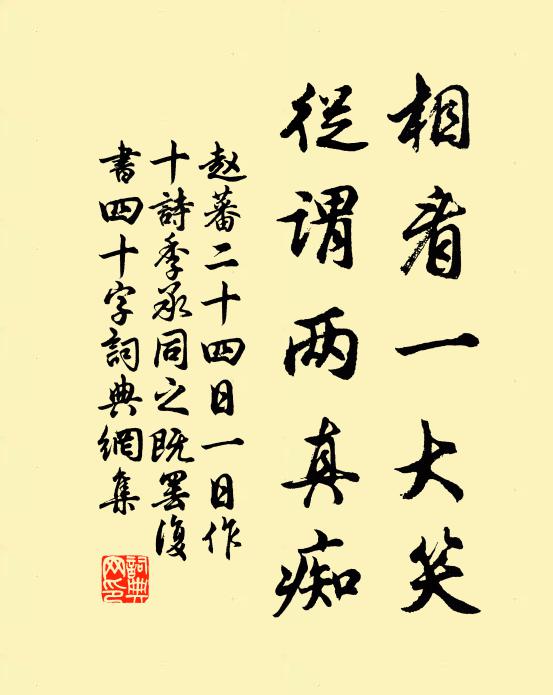 相看一大笑
從谓两真痴
赵蕃二十四日一日作
十詩季承同之既罢復
書四十字詞典網集
詞典
网印